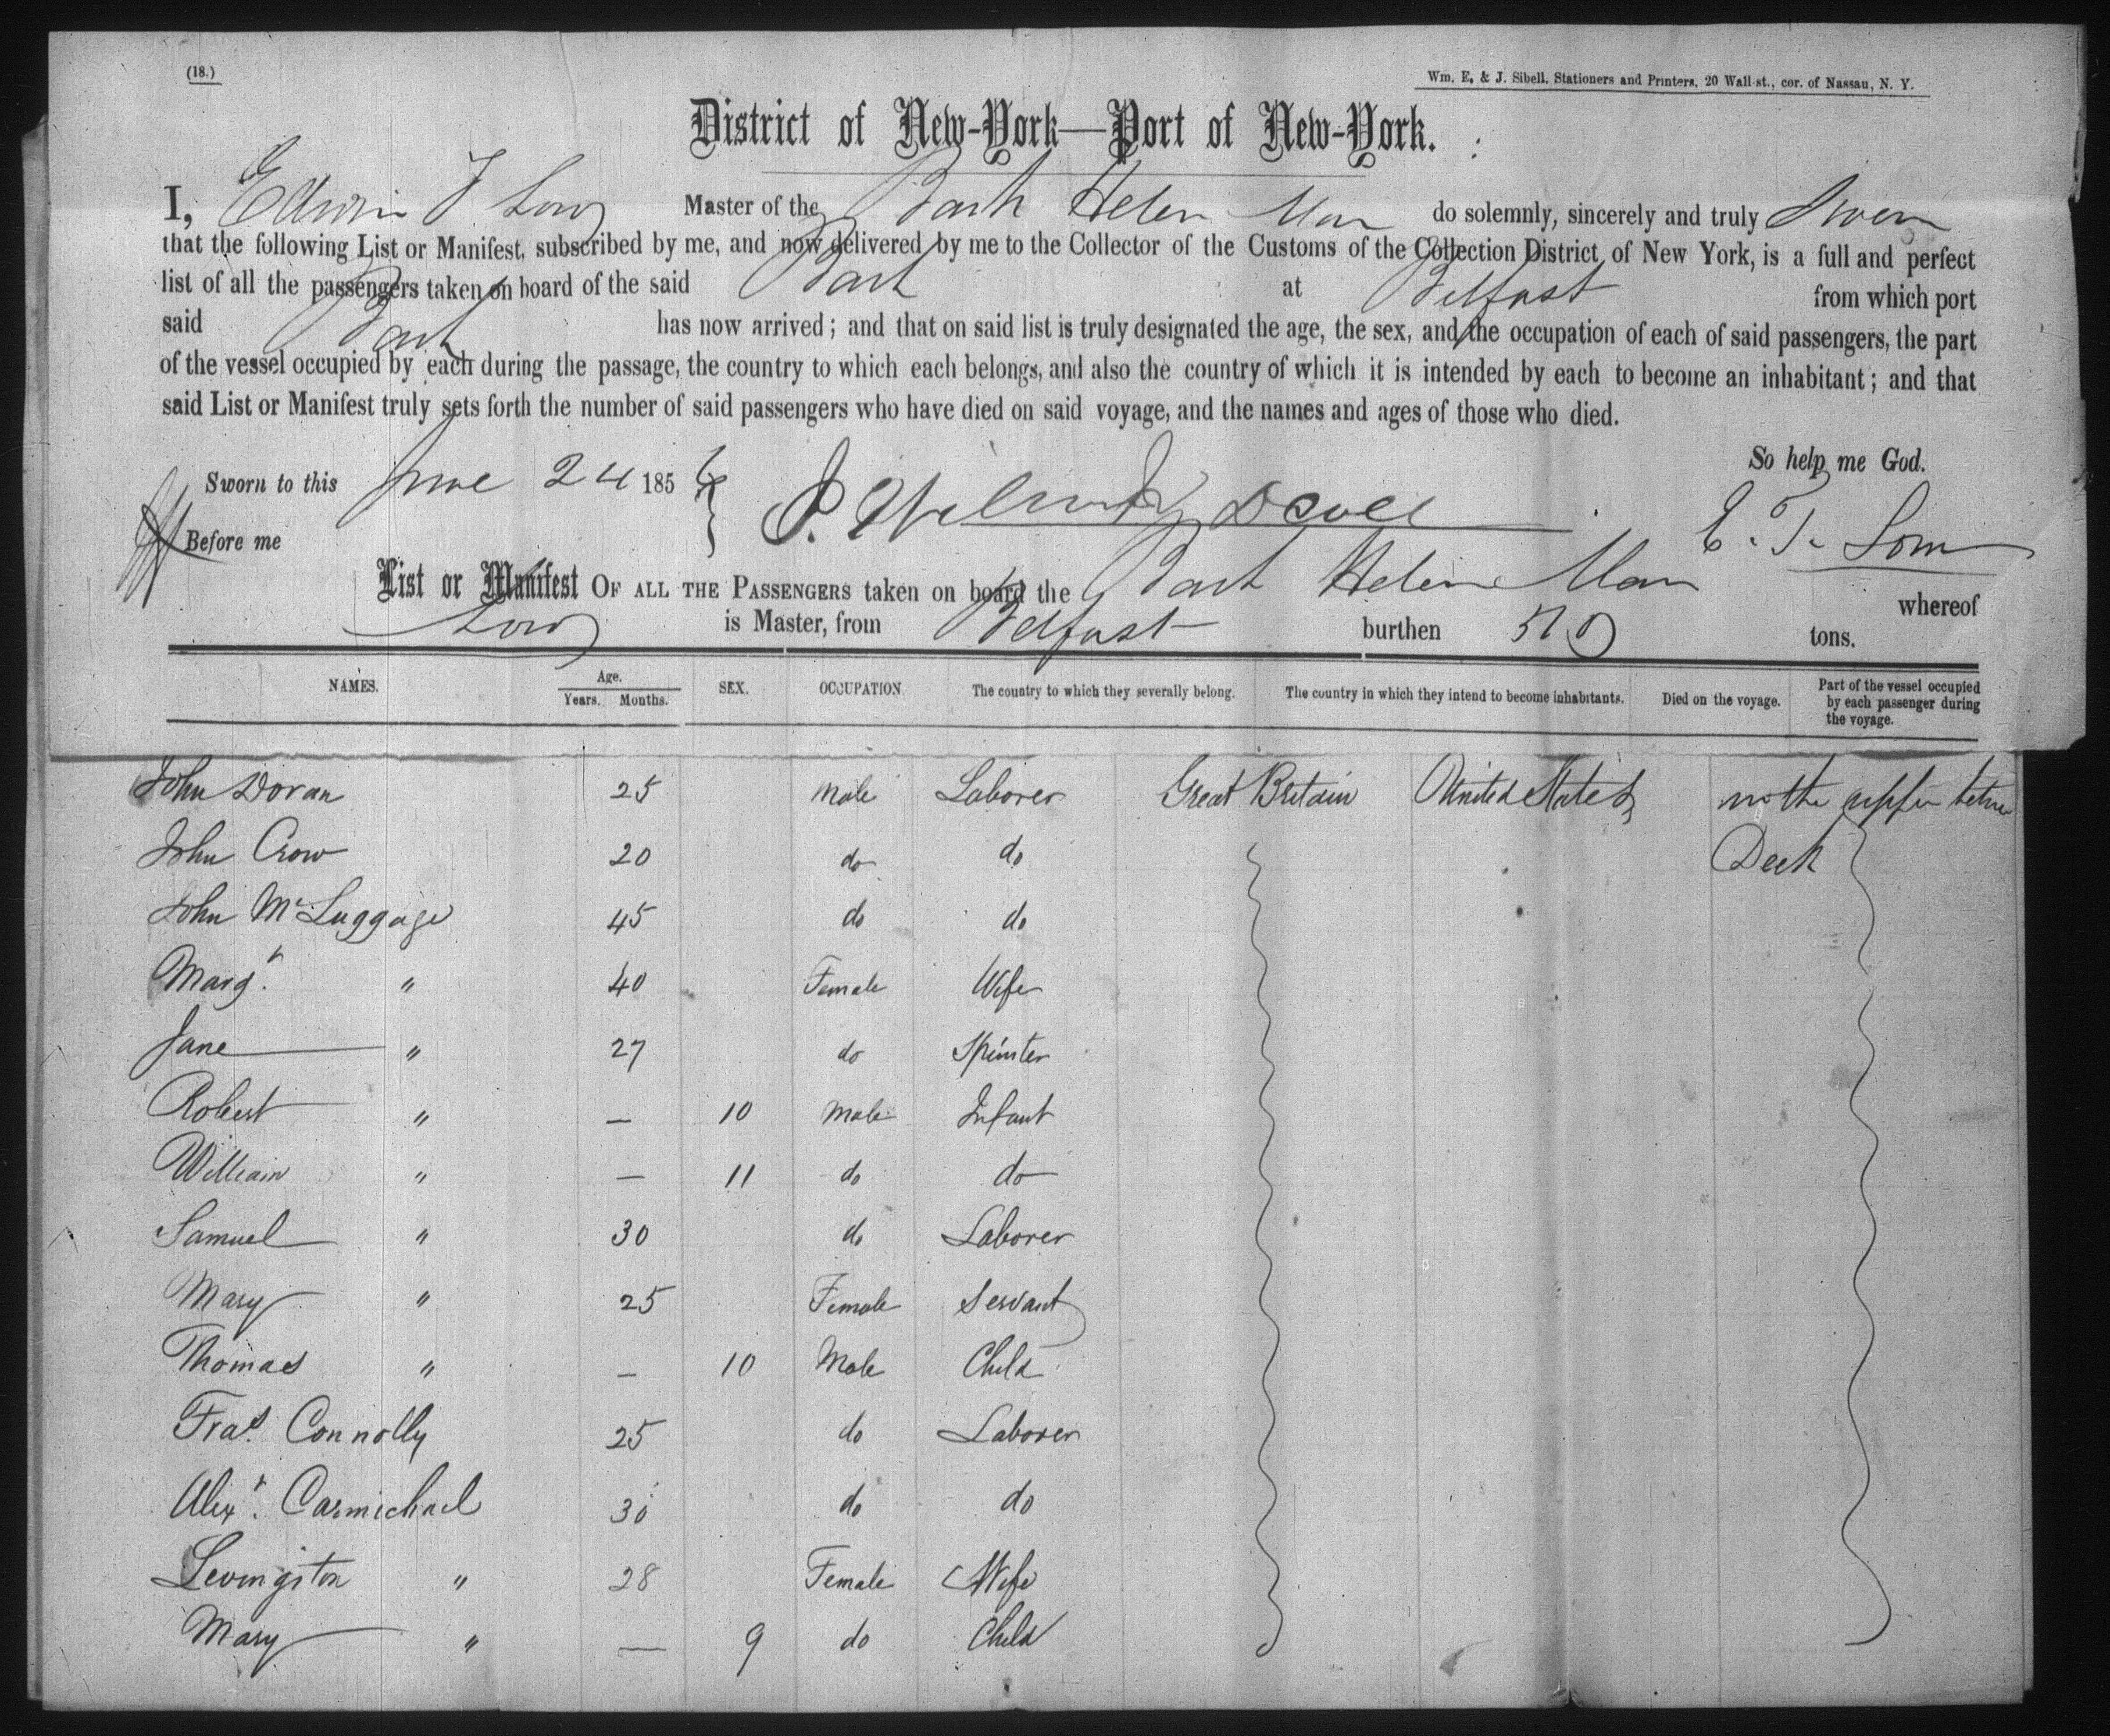 (18.)
Wm. E. & J. Sibell, Stationers and Printers, 20 Wall-st., cor. of Nassau, N. Y.
District of New-York—Port of New-York.
I, Edwin T Low Master of the Bark Helen Mar do solemnly, sincerely and truly Swear
that the following List or Manifest, subscribed by me, and now delivered by me to the Collector of the Customs of the Collection District of New York, is a full and perfect
list of all the passengers taken on board of the said Bark at Belfast from which port
said Bark has now arrived; and that on said list is truly designated the age, the sex, and the occupation of each of said passengers, the part
of the vessel occupied by each during the passage, the country to which each belongs, and also the country of which it is intended by each to become an inhabitant; and that
said List or Manifest truly sets forth the number of said passengers who have died on said voyage, and the names and ages of those who died.
So help me God.
Sworn to this June 24 1856
E. T. Low
Before me
List or Manifest OF ALL THE PASSENGERS taken on board the Bark Helen Mar whereof
Low is Master, from Belfast burthen tons.
NAMES. Age. Years. Months. SEX. OCCUPATION. The country to which they severally belong. The country in which they intend to become inhabitants. Died on the voyage. Part of the vessel occupied by each passenger during the voyage.
John Doran 25 Male Laborer Great Britain United States in the upper between
John Crow 20 do do Deck
John McLuggage 45 do do
Margt. " 40 Female Wife
Jane " 27 do Spinster
Robert " — 10 Male Infant
William " — 11 do do
Samuel " 30 do Laborer
Mary " 25 Female Servant
Thomas " — 10 Male Child
Fras. Connolly 25 do Laborer
Alexr. Carmichael 30 do do
Levingston " 28 Female Wife
Mary " — 9 do Child